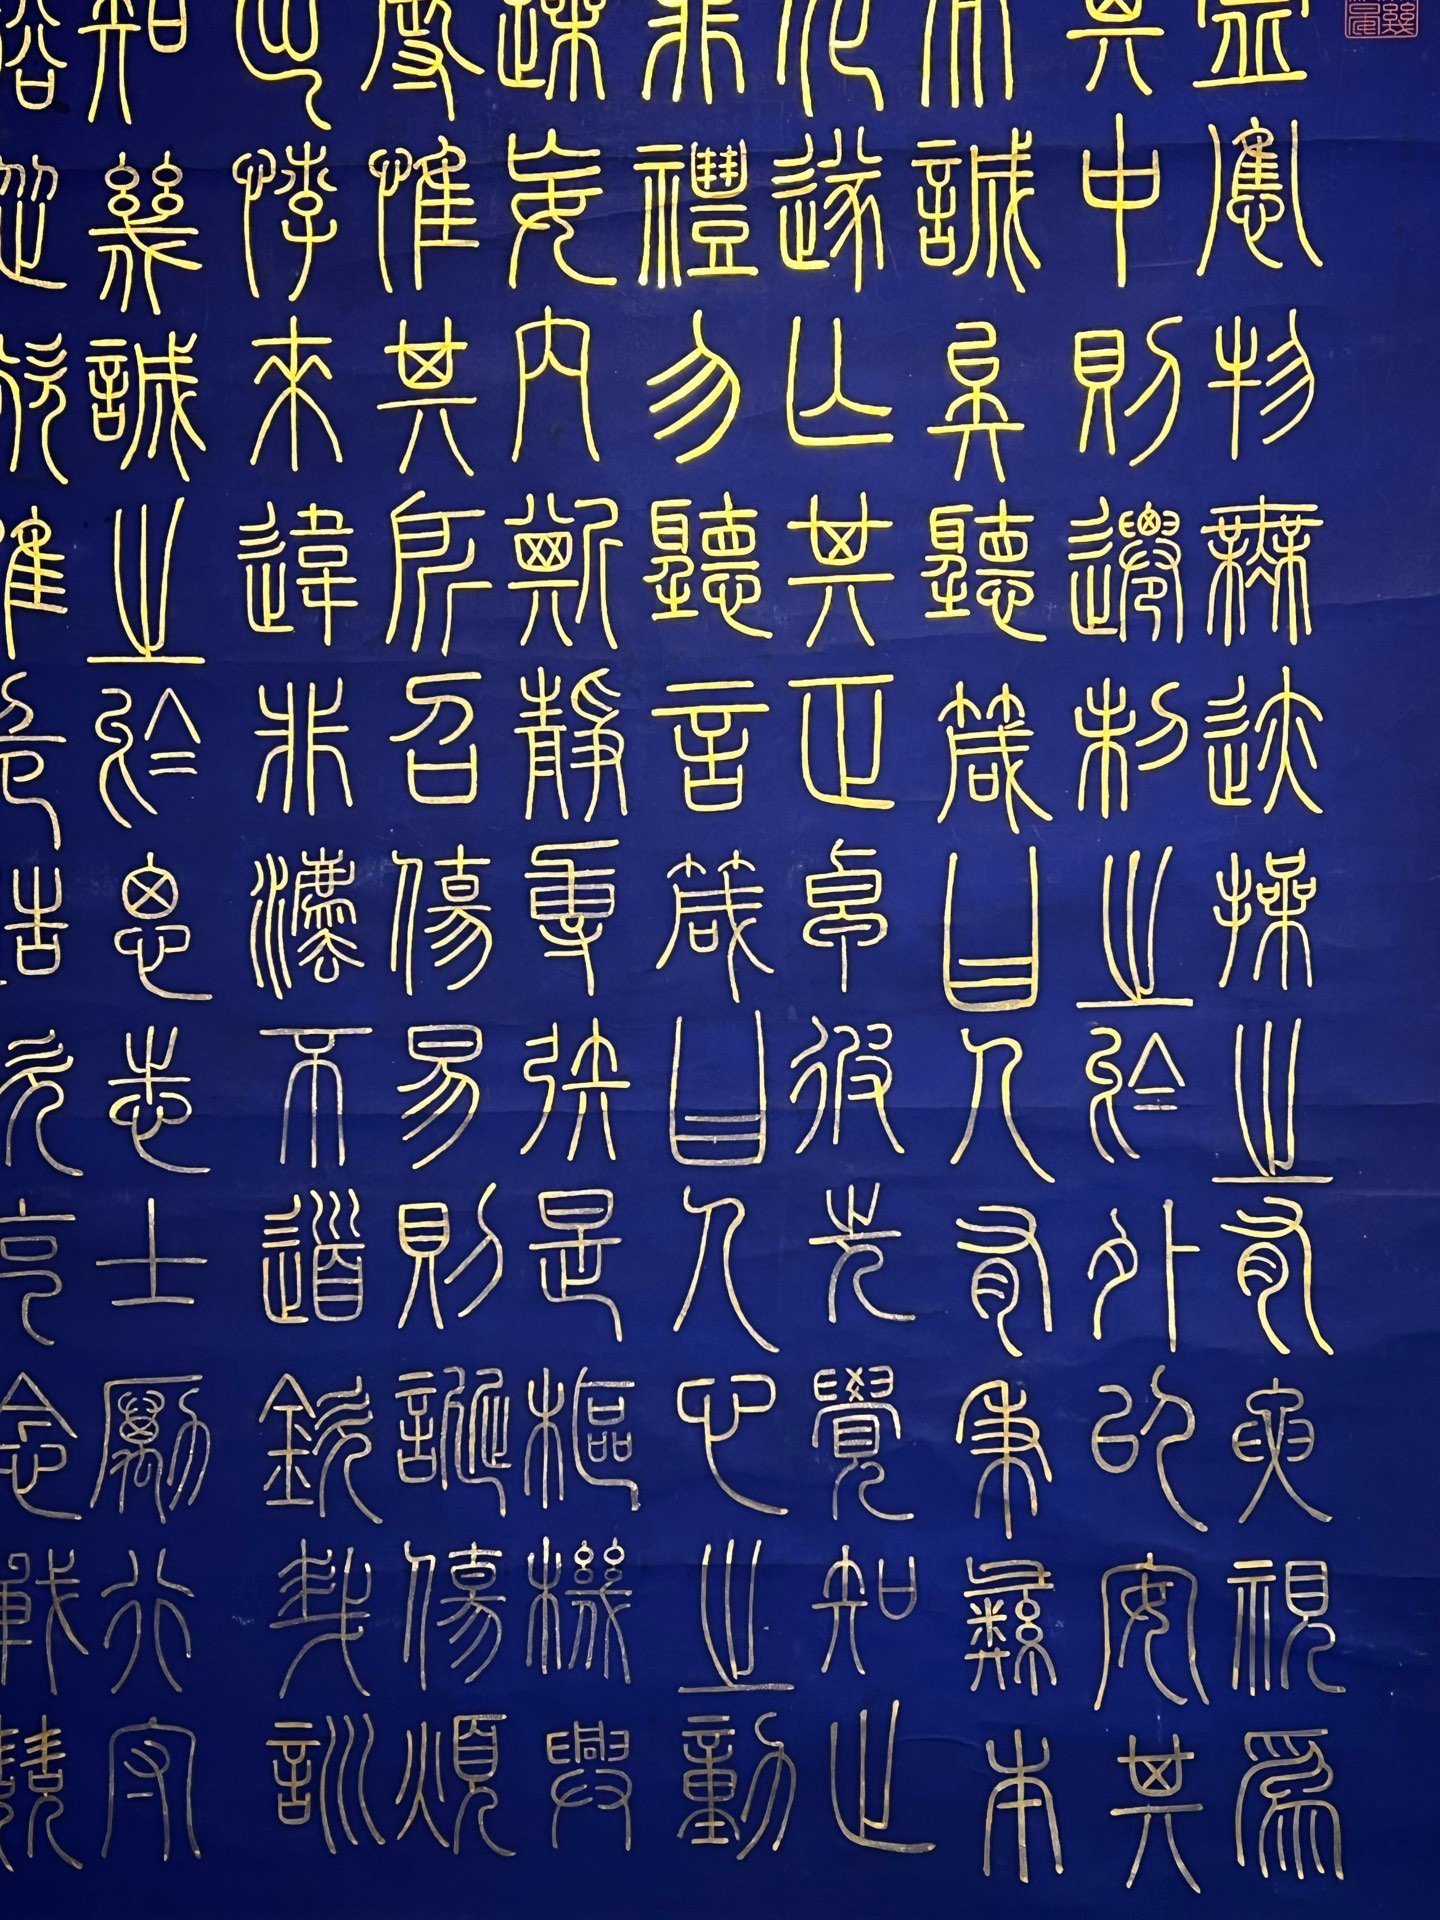 虛應物無迹操之有要視為
其中則遷制之於外以安其
而誠矣聽箴曰人有秉彝本
化遂亡其正卓彼先覺知止
非禮勿聽言箴曰人心之動
躁妄內斯靜專矧是樞機興
辱惟其所召傷易則誕傷煩
出悖來違非法不道欽哉訓
知幾誠之於思志士勵行守
裕從欲惟危造次克念戰兢